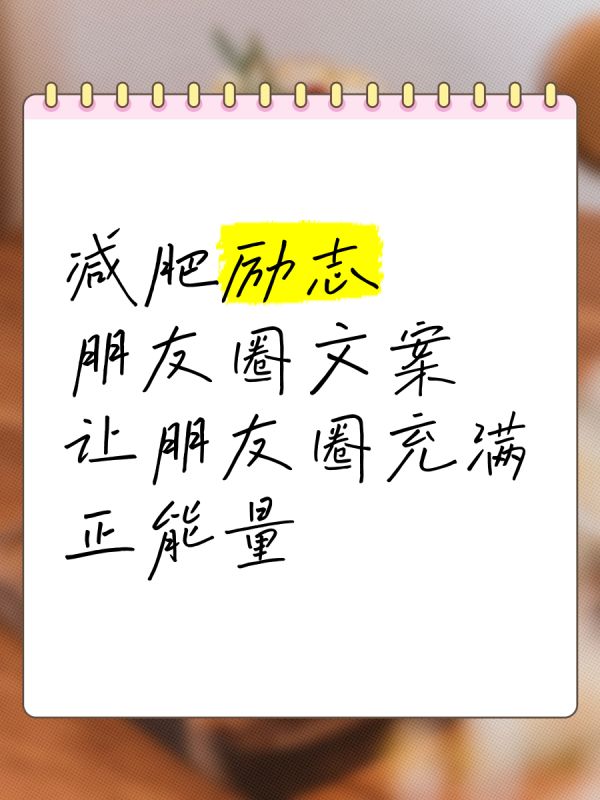 减肥励志
朋友圈文案
让朋友圈充满
正能量